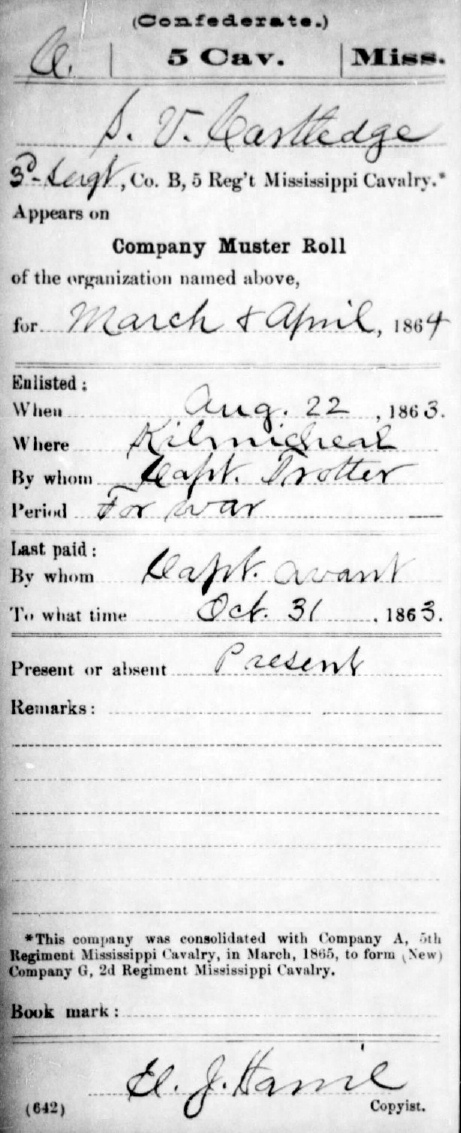 (Confederate.)
C. 5 Cav. Miss.
S. V. Cartledge
3d Sergt, Co. B, 5 Reg't Mississippi Cavalry.*
Appears on
Company Muster Roll
of the organization named above,
for March & April, 1864
Enlisted:
When Aug. 22, 1863.
Where Kilmicheal
By whom Capt. Trotter
Period For war
Last paid:
By whom Capt. Avant
To what time Oct. 31, 1863.
Present or absent Present
Remarks:
*This company was consolidated with Company A, 5th
Regiment Mississippi Cavalry, in March, 1865, to form (New)
Company G, 2d Regiment Mississippi Cavalry.
Book mark:
J.
(642) Copyist.